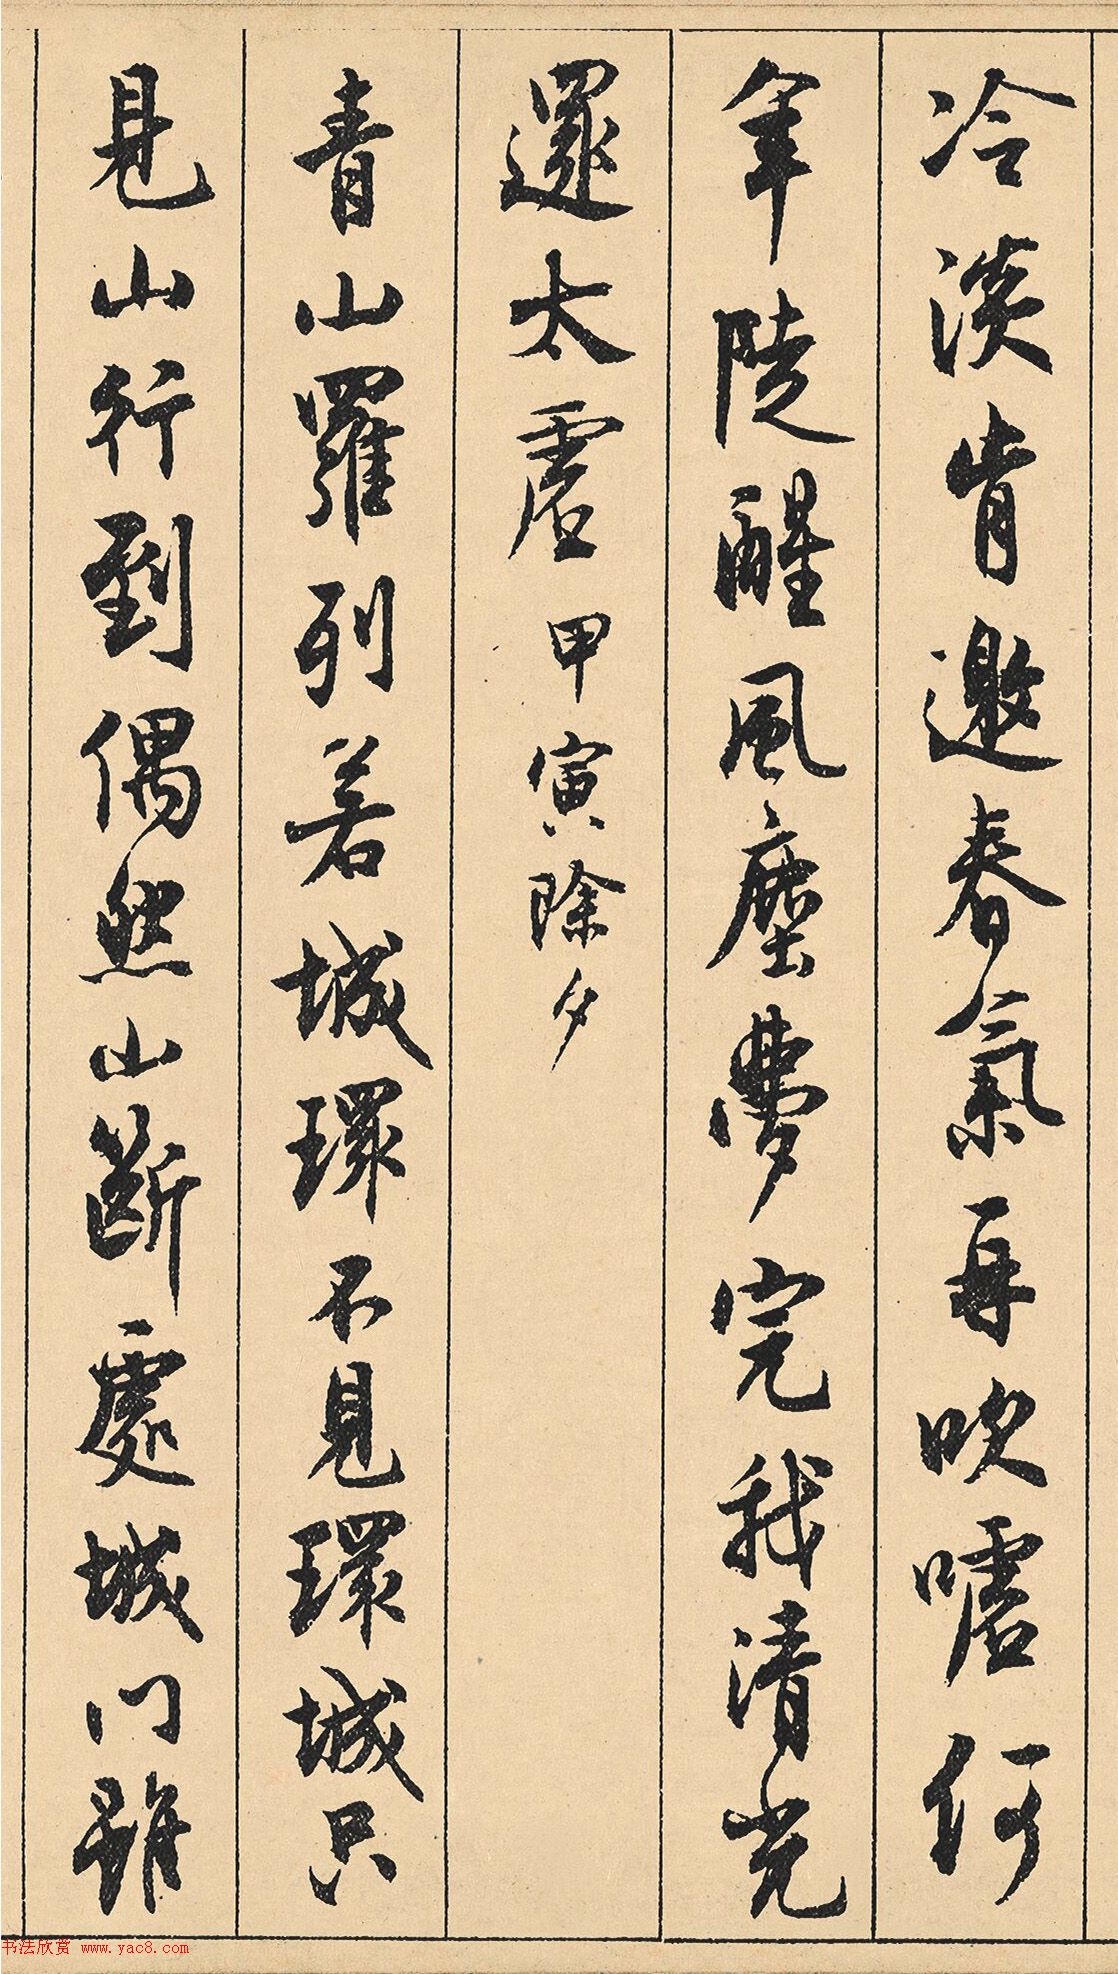 冷淡肯邀春氣再吹噓何
年陡醒風塵夢完我清光
還太虛甲寅除夕
青山羅列若城環不見環城只
見山行到偶然山斷處城門雖
书法欣赏 www.yac8.com